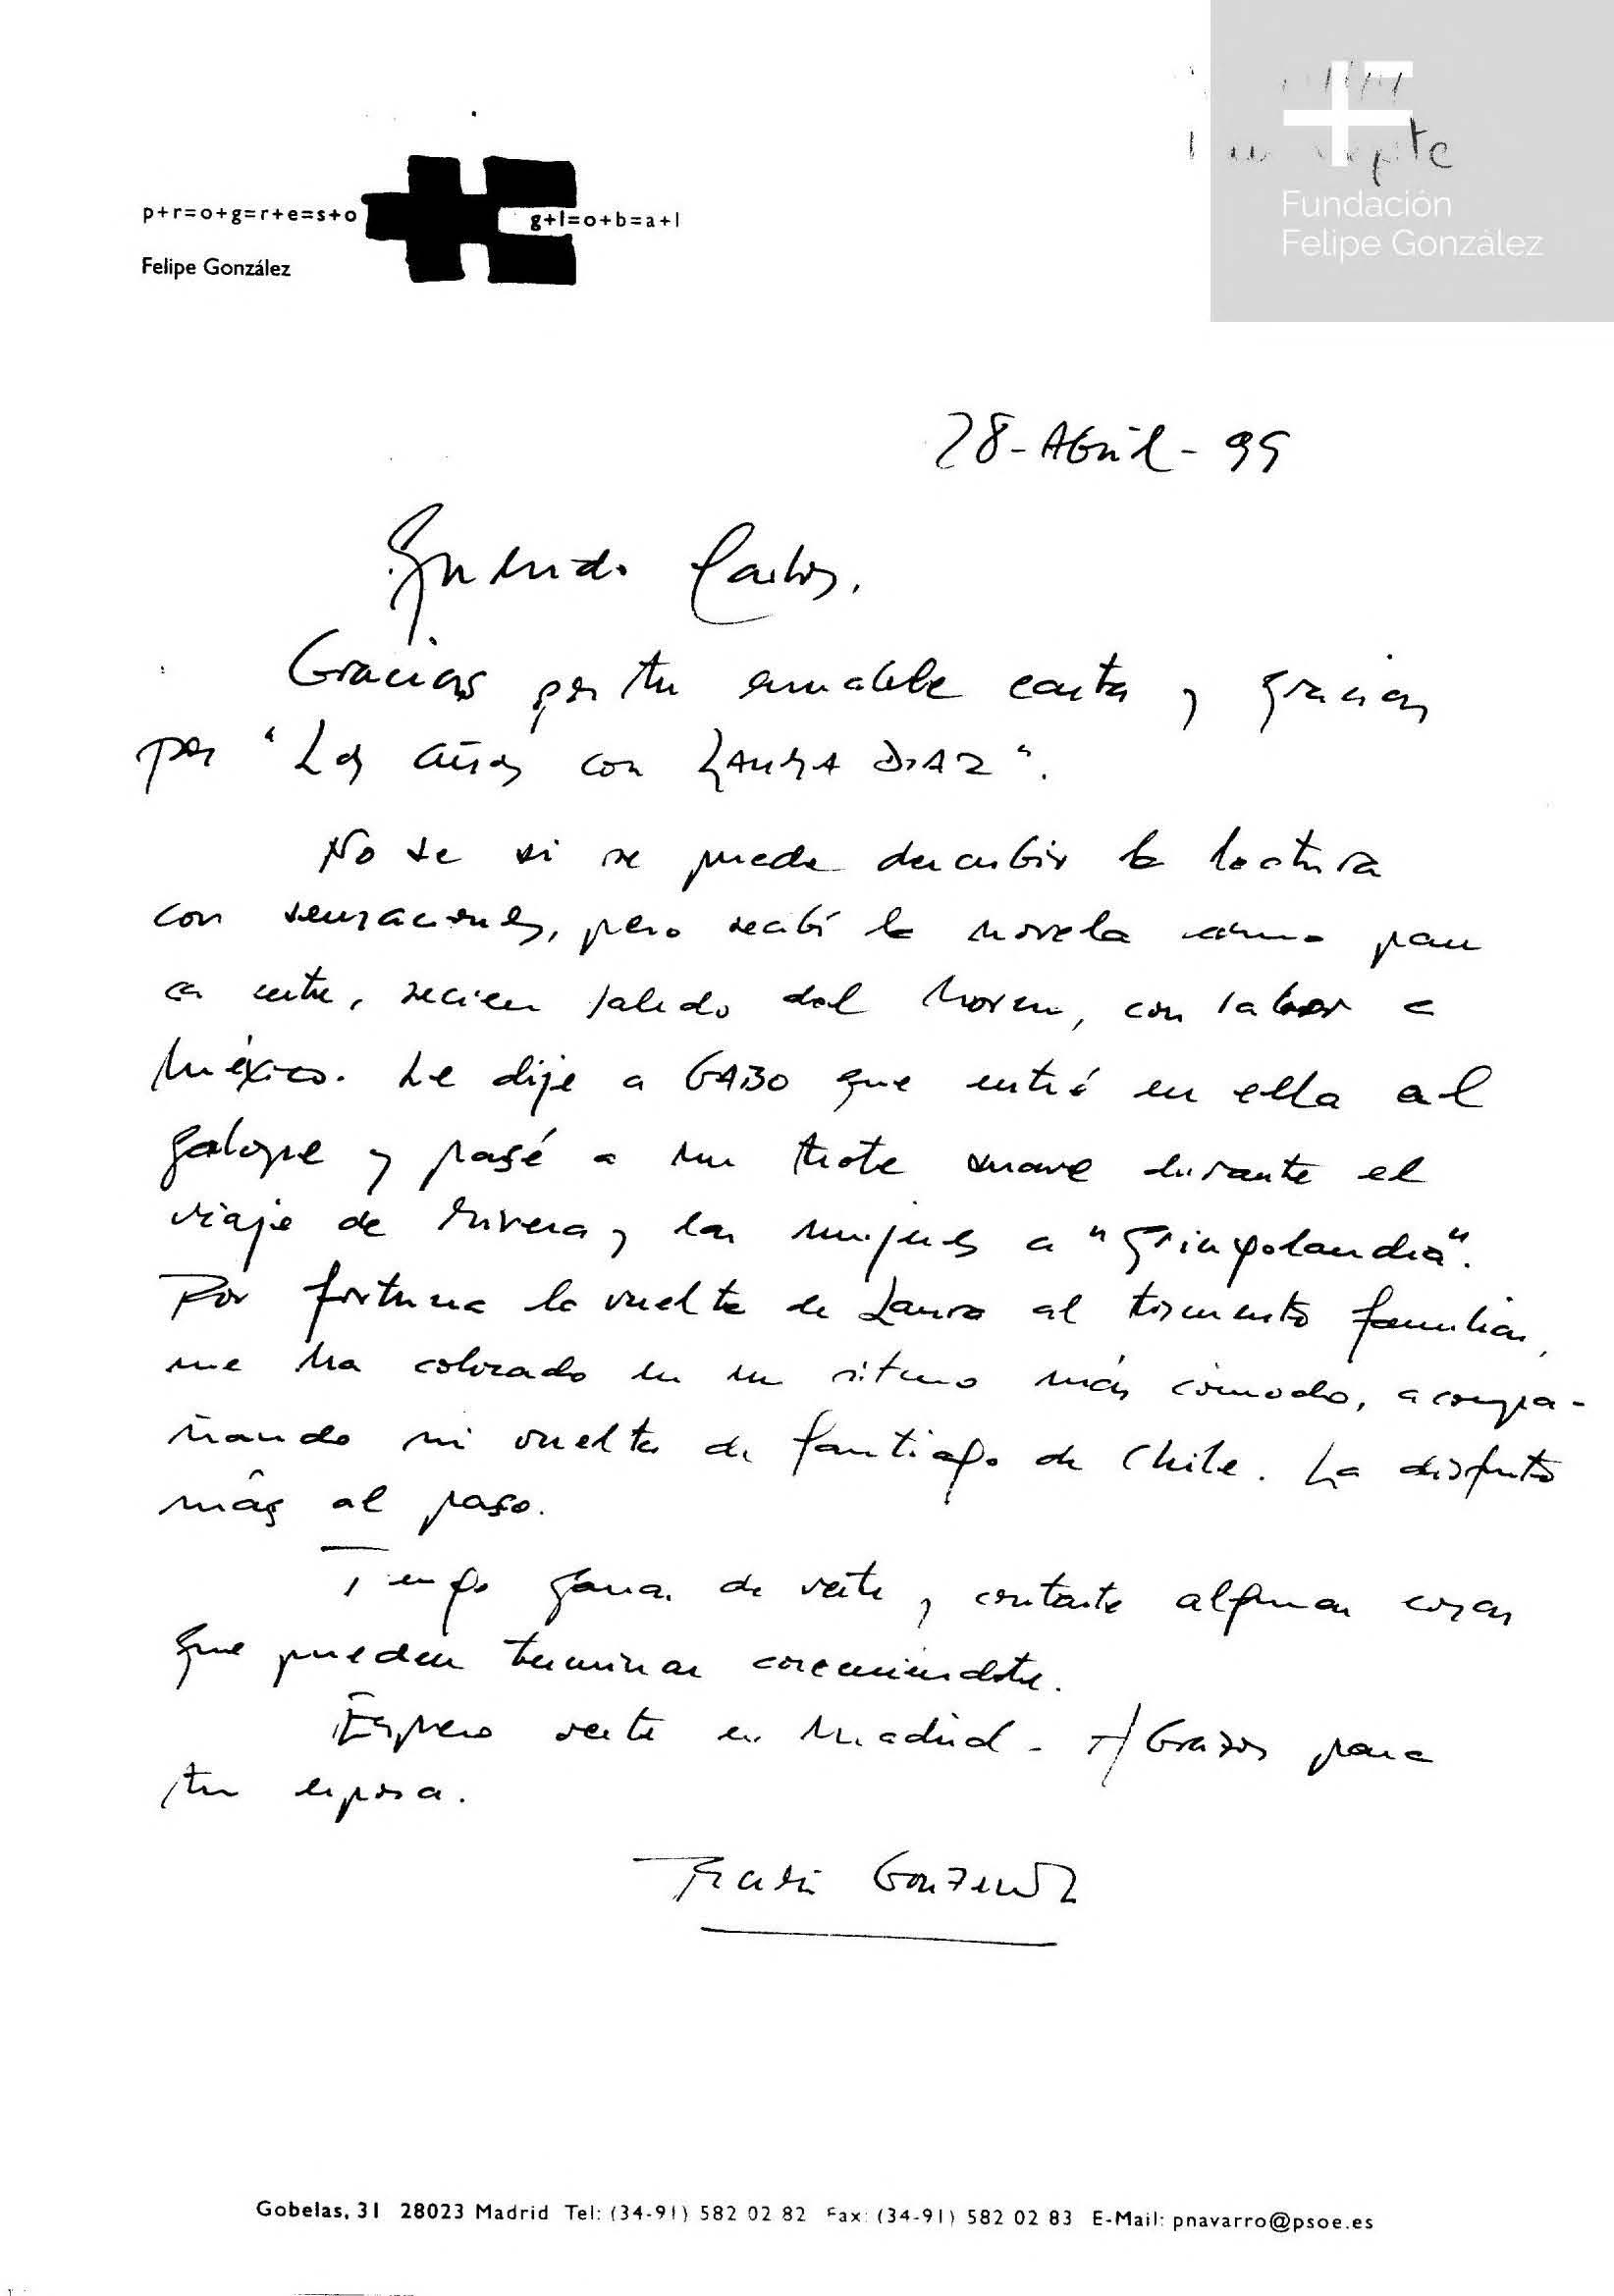 p+r=o+g=r+e=s+o g+l=o+b=a+l
Felipe González
Fundación
Felipe González
28-Abril-99
Querido Carlos,
Gracias por tu amable carta y gracias
por "Los años con LAURA DIAZ".
No se si se puede describir la lectura
con sensaciones, pero recibí la novela como pan
recien salido del horno, con sabor a
México. Le dije a GABO que entré en ella al
galope y pasé a un trote suave durante el
viaje de Rivera y las mujeres a "gringolandia".
Por fortuna la vuelta de Laura al tormento familiar,
me ha colocado en un ritmo más cómodo, acompa-
ñando mi vuelta de Santiago de Chile. La disfruto
más al paso.
Tengo ganas de verte y contarte algunas cosas
que pueden terminar
Espero verte en Madrid - Abrazos para
tu esposa.
Gobelas, 31 28023 Madrid Tel: (34-91) 582 02 82 Fax: (34-91) 582 02 83 E-Mail: pnavarro@psoe.es